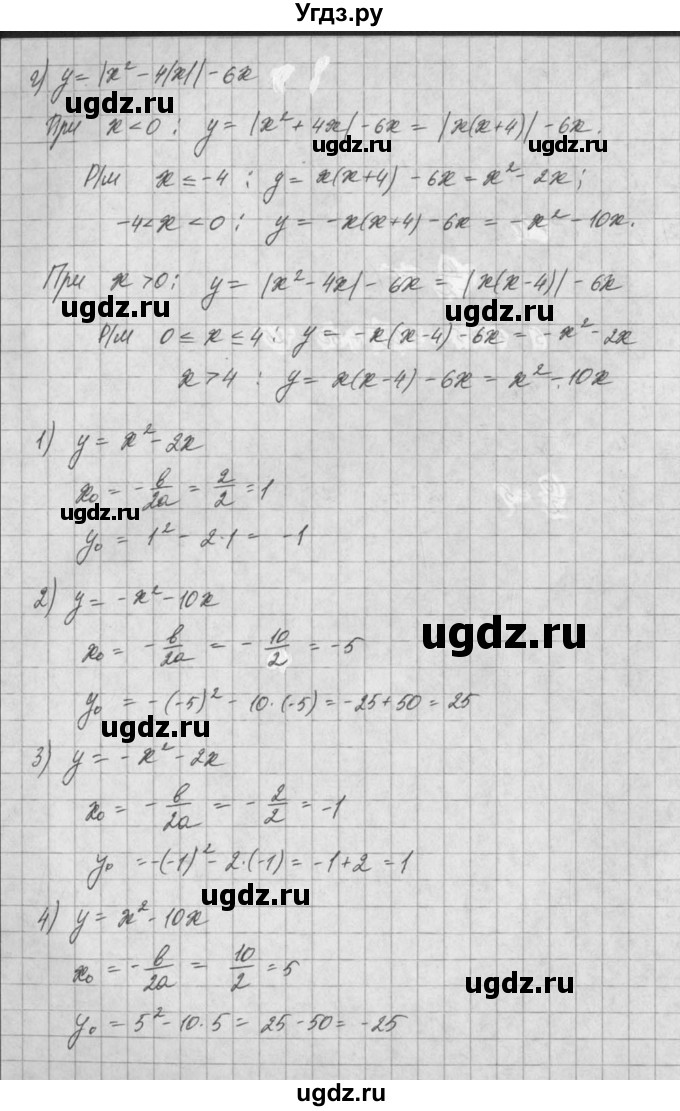 Угдз.ру
г) y = |x² - 4|x|| - 6x
ugdz.ru
При x < 0 : y = |x² + 4x| - 6x = |x(x+4)| - 6x.
ugdz.ru
Р/м x ≤ -4 : y = x(x+4) - 6x = x² - 2x;
-4 < x < 0 : y = -x(x+4) - 6x = -x² - 10x.
При x > 0 : y = |x² - 4x| - 6x = |x(x-4)| - 6x
ugdz.ru
ugdz.ru
Р/м 0 ≤ x ≤ 4 : y = -x(x-4) - 6x = -x² - 2x
x > 4 : y = x(x-4) - 6x = x² - 10x
1) y = x² - 2x
x₀ = -в/2a = 2/2 = 1
ugdz.ru
y₀ = 1² - 2·1 = -1
2) y = -x² - 10x
ugdz.ru
x₀ = -в/2a = -10/2 = -5
y₀ = -(-5)² - 10·(-5) = -25 + 50 = 25
ugdz.ru
3) y = -x² - 2x
x₀ = -в/2a = -2/2 = -1
y₀ = -(-1)² - 2·(-1) = -1 + 2 = 1
ugdz.ru
4) y = x² - 10x
x₀ = -в/2a = 10/2 = 5
ugdz.ru
y₀ = 5² - 10·5 = 25 - 50 = -25
ugdz.ru